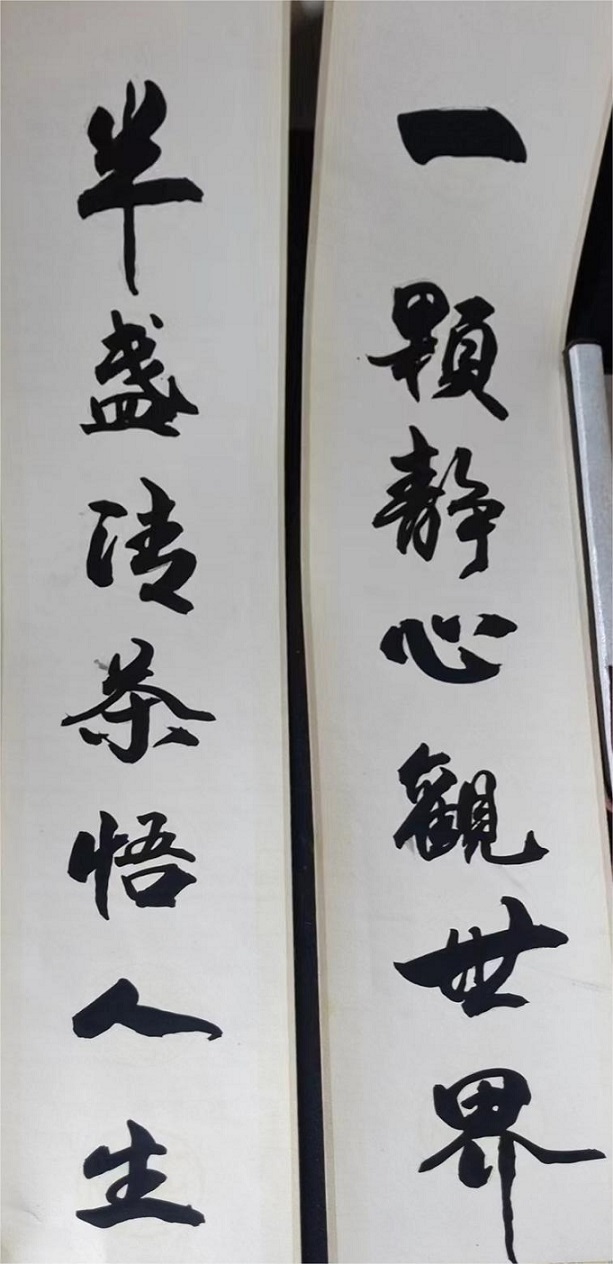 一顆靜心觀世界
半盏清茶悟人生